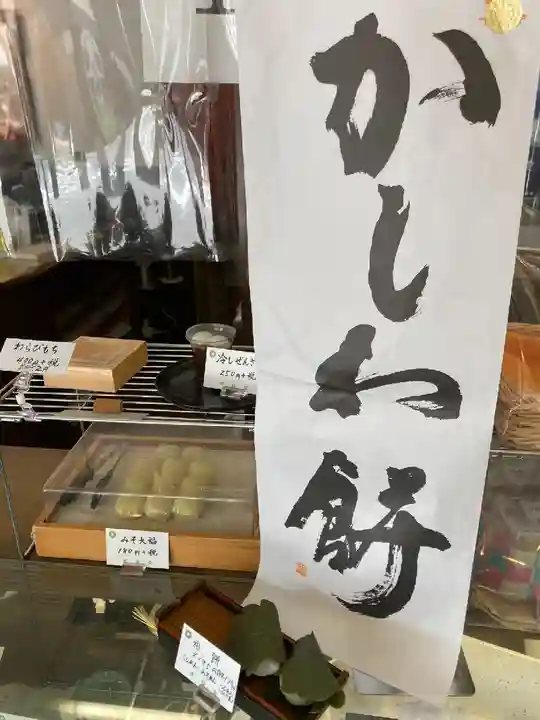 かしわ餅
わらびもち
400円+税
冷しぜん
250円+税
みそ大福
180円+税
柏餅